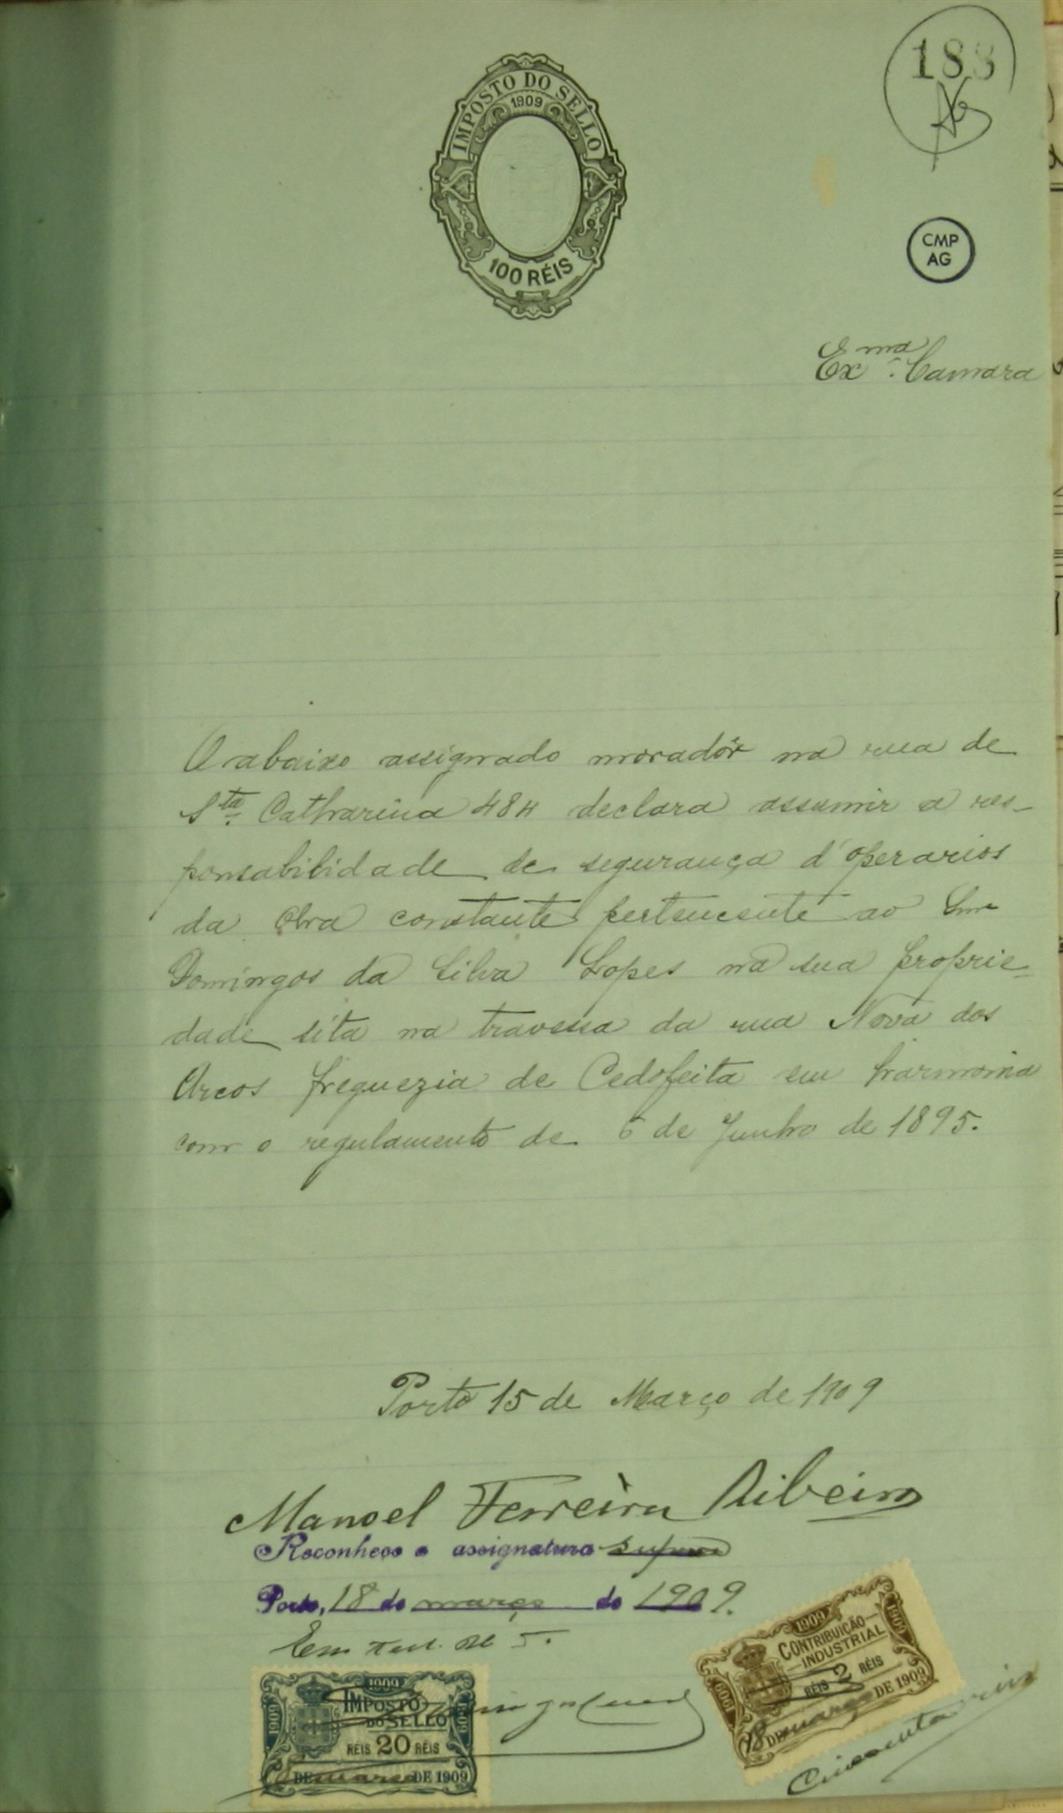 188
IMPOSTO DO SELLO
1909
100 RÉIS
CMP
AG
Exma. Camara
O abaixo assignado moradôr na rua de
Sta. Catharina 484 declara assumir a res-
ponsabilidade de segurança d'operarios
da obra constante pertencente ao Snr
Domingos da Silva Lopes na sua proprie-
dade sita na travessa da rua Nova dos
Arcos freguezia de Cedofeita em harmonia
com o regulamento de 6 de Junho de 1895.
Porto 15 de Março de 1909
Manoel Ferreira Ribeiro
Reconheço a assignatura supra
Porto, 18 de março de 1909.
Em
1909
CONTRIBUIÇÃO
INDUSTRIAL
1909 1909
REIS 2 RÉIS
18 DE março DE 1909
1909
IMPOSTO
DO SELLO
1909 1909
REIS 20 RÉIS
DE março DE 1909
Cincoenta reis